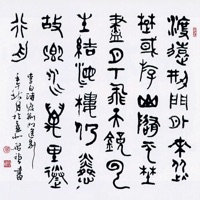 渡遠荊門外來從
楚國游山隨平野
盡月下飛天鏡雲
生結海樓仍憐
故鄉水萬里送
行舟
李白詩渡荊門送別